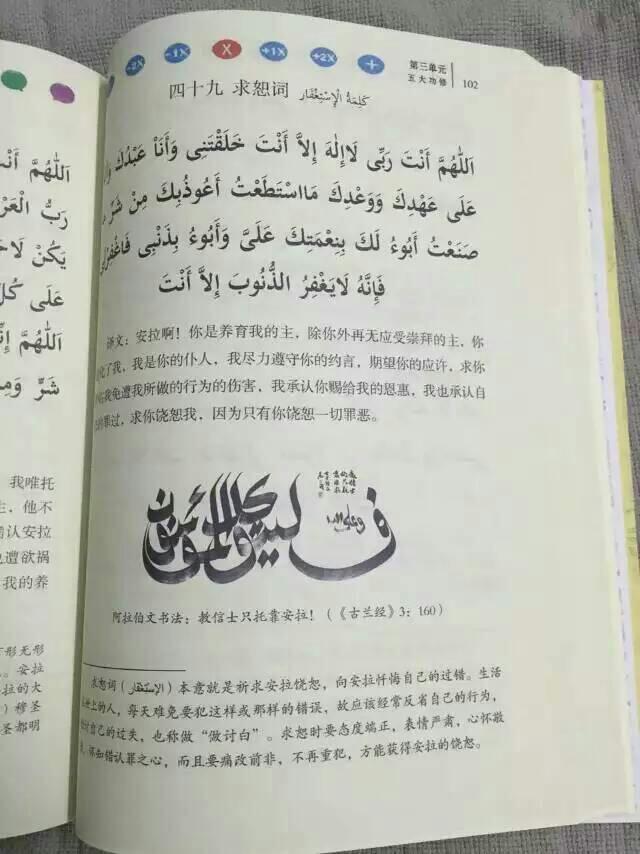 -2X -1X X +1X +2X +
第三单元
五大功修 102
四十九 求恕词 كَلِمَةُ الْإِسْتِغْفَارِ
اَللّٰهُمَّ أَنْتَ رَبِّى لَاإِلٰهَ إِلاَّ أَنْتَ خَلَقْتَنِى وَأَنَاْ عَبْدُكَ
عَلَى عَهْدِكَ وَوَعْدِكَ مَااسْتَطَعْتُ أَعُوذُبِكَ مِنْ شَرِّ
صَنَعْتُ أَبُوءُ لَكَ بِنِعْمَتِكَ عَلَىَّ وَأَبُوءُ بِذَنْبِى فَاغْفِرْلِى
فَإِنَّهُ لَايَغْفِرُ الذُّنُوبَ إِلاَّ أَنْتَ
译文：安拉啊！你是养育我的主，除你外再无应受崇拜的主，你
化了我，我是你的仆人，我尽力遵守你的约言，期望你的应许，求你
我免遭我所做的行为的伤害，我承认你赐给我的恩惠，我也承认自
的罪过，求你饶恕我，因为只有你饶恕一切罪恶。
وعلى الله
فليتوكل المؤمنون
阿拉伯文书法：教信士只托靠安拉！（《古兰经》3：160）
求恕词（الإستغفار）本意就是祈求安拉饶恕，向安拉忏悔自己的过错。生活
世上的人，每天难免要犯这样或那样的错误，故应该经常反省自己的行为，
讨自己的过失，也称做“做讨白”。求恕时要态度端正，表情严肃，心怀敬
坏知错认罪之心，而且要痛改前非，不再重犯，方能获得安拉的饶恕。
اَللّٰهُمَّ أَنْتَ
رَبُّ الْعَرْ
يَكُنْ لَا
عَلَى كُلِّ
اَللّٰهُمَّ إِنِّ
شَرِّ وَمِ
我唯托
，他不
认安拉
遭欲祸
我的养
形无形
。安拉
拉的大
）穆圣
圣都明